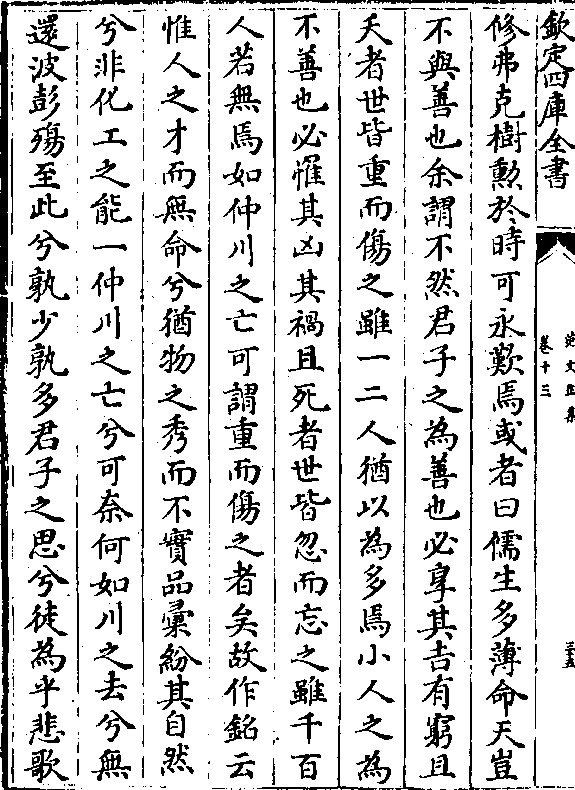 欽定四庫全書
范文正集
卷十三
三十五
修弗克樹勲於時可永歎焉或者曰儒生多薄命天豈
不與善也余謂不然君子之為善也必享其吉有窮且
夭者世皆重而傷之雖一二人猶以為多焉小人之為
不善也必惟其凶其禍且死者世皆忽而忘之雖千百
人若無焉如仲川之亡可謂重而傷之者矣故作銘云
惟人之才而無命兮猶物之秀而不實品彚紛其自然
兮非化工之能一仲川之亡兮可奈何如川之去兮無
還波彭殤至此兮孰少孰多君子之思兮徒為乎悲歌